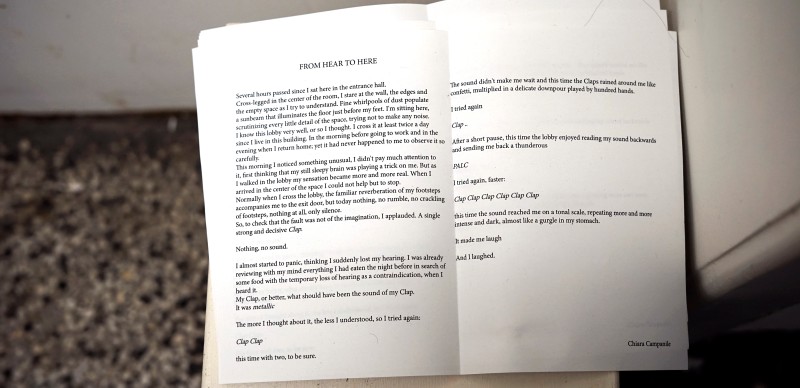 FROM HEAR TO HERE
Several hours passed since I sat here in the entrance hall.
Cross-legged in the center of the room, I stare at the wall, the edges and
the empty space as I try to understand. Fine whirlpools of dust populate
a sunbeam that illuminates the floor just before my feet. I'm sitting here,
scrutinizing every little detail of the space, trying not to make any noise.
I know this lobby very well, or so I thought. I cross it at least twice a day
since I live in this building. In the morning before going to work and in the
evening when I return home; yet it had never happened to me to observe it so
carefully.
This morning I noticed something unusual. I didn't pay much attention to
it, first thinking that my still sleepy brain was playing a trick on me. But as
I walked in the lobby my sensation became more and more real. When I
arrived in the center of the space I could not help but to stop.
Normally when I cross the lobby, the familiar reverberation of my footsteps
accompanies me to the exit door, but today nothing, no rumble, no crackling
of footsteps, nothing at all, only silence.
So, to check that the fault was not of the imagination, I applauded. A single
strong and decisive Clap.
Nothing, no sound.
I almost started to panic, thinking I suddenly lost my hearing. I was already
reviewing with my mind everything I had eaten the night before in search of
some food with the temporary loss of hearing as a contraindication, when I
heard it.
My Clap, or better, what should have been the sound of my Clap.
It was metallic
The more I thought about it, the less I understood, so I tried again:
Clap Clap
this time with two, to be sure.
The sound didn't make me wait and this time the Claps rained around me like
confetti, multiplied in a delicate downpour played by hundred hands.
I tried again
Clap -
After a short pause, this time the lobby enjoyed reading my sound backwards
and sending me back a thunderous
PALC
I tried again, faster:
Clap Clap Clap Clap Clap Clap
this time the sound reached me on a tonal scale, repeating more and more
intense and dark, almost like a gurgle in my stomach.
It made me laugh
And I laughed.
Chiara Campanile